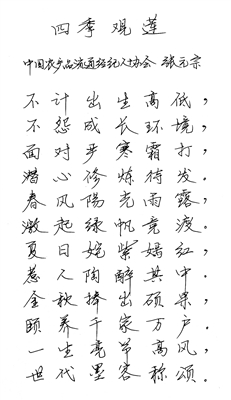 四季观莲
中国农产品流通经纪人协会 张元宗
不计出生高低，
不怨成长环境，
面对步寒霜打，
潜心修炼待发。
春风阳光雨露，
激起绿帆竞渡。
夏日姹紫嫣红，
惹人陶醉其中。
金秋捧出硕果，
颐养千家万户。
一生亮节高风，
世代墨客称颂。